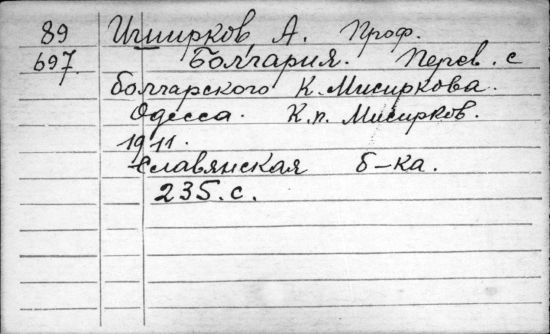 89 Иширков, А. Проф.
697. Болгария. Перев. с
болгарского К. Мисиркова.
Одесса. К.п. Мисирков.
1911.
Славянская б-ка.
235. с.